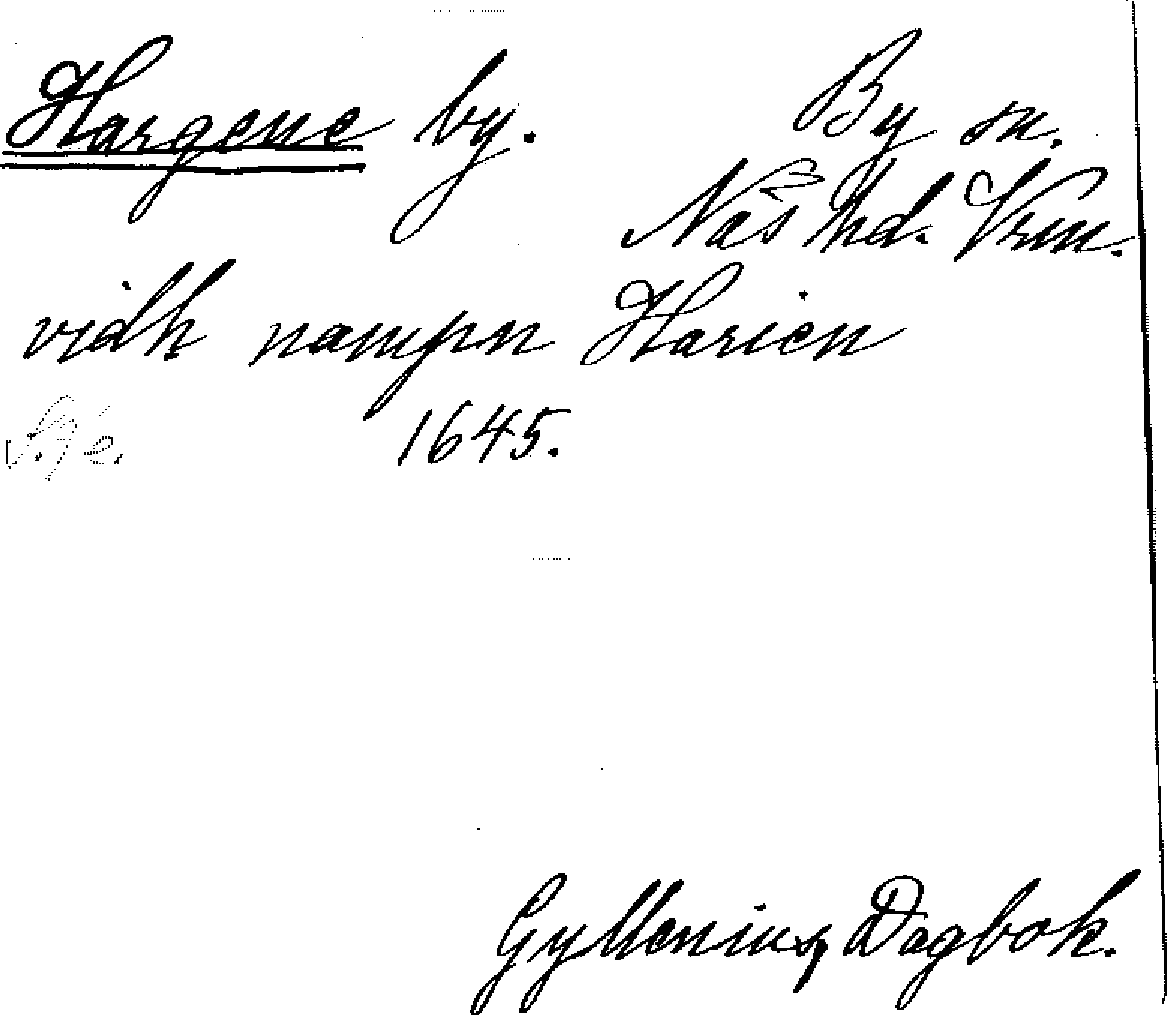 Hargene by. By sn.
Näs hd. Vrm.
vidh nampn Harien
1645.
Gyllenius, Dagbok.